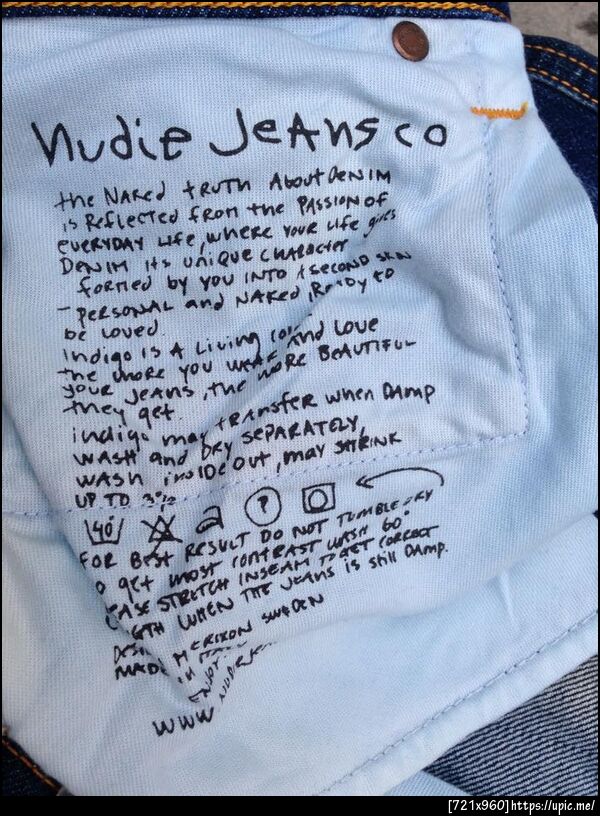 Nudie Jeans co
the Naked truth About Denim
is Reflected from the Passion of
everyday life, where your life gives
Denim its unique character
formed by you into a second skin
- personal and naked, Ready to
be loved
Indigo is a Living and Love
the more you wear
your jeans, the more Beautiful
they get.
indigo may transfer when Damp
Wash and Dry separately,
wash inside out, may shrink
up to 3%
40 P
For best result do not tumble dry
o get most contrast wash 60°
stretch inseam to get correct
when the jeans is still damp.
M Erixon Sweden
Made in
Enjoy
www
[721x960]https://upic.me/